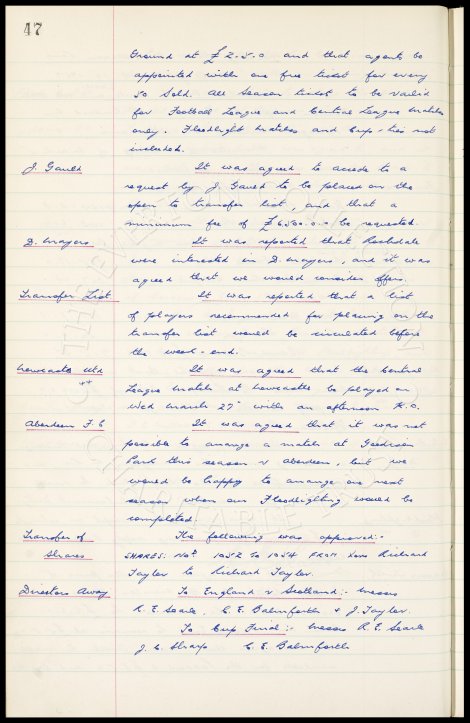 47
Ground at £2.5.0 and that agents be
appointed with one free ticket for every
50 sold. All Season ticket to be valid
for Football League and Central League Matches
only. Floodlight Matches and Cup-ties not
included.
J. Gauld It was agreed to accede to a
request by J. Gauld to be placed on the
open to transfer list, and that a
minimum fee of £6,500.0.0 be requested.
D. Mayers It was reported that Rochdale
were interested in D. Mayers, and it was
agreed that we would consider offers.
Transfer List It was reported that a list
of players recommended for placing on the
transfer list would be circulated before
the week-end.
Newcastle Utd It was agreed that the Central
League Match at Newcastle be played on
Wed March 27th with an afternoon K.O.
Aberdeen F.C It was agreed that it was not
possible to arrange a match at Goodison
Park this season v Aberdeen, but we
would be happy to arrange one next
season when our Floodlighting would be
completed.
Transfer of The following was approved:-
Shares SHARES: Nos 1952 to 1954 FROM Exors Richard
Taylor to Richard Taylor.
Directors Away To England v Scotland:- Messrs
R. E. Searle, C. E. Balmforth & J. Taylor.
To Cup Final:- Messrs R. E. Searle
J. C. Sharp C. E. Balmforth